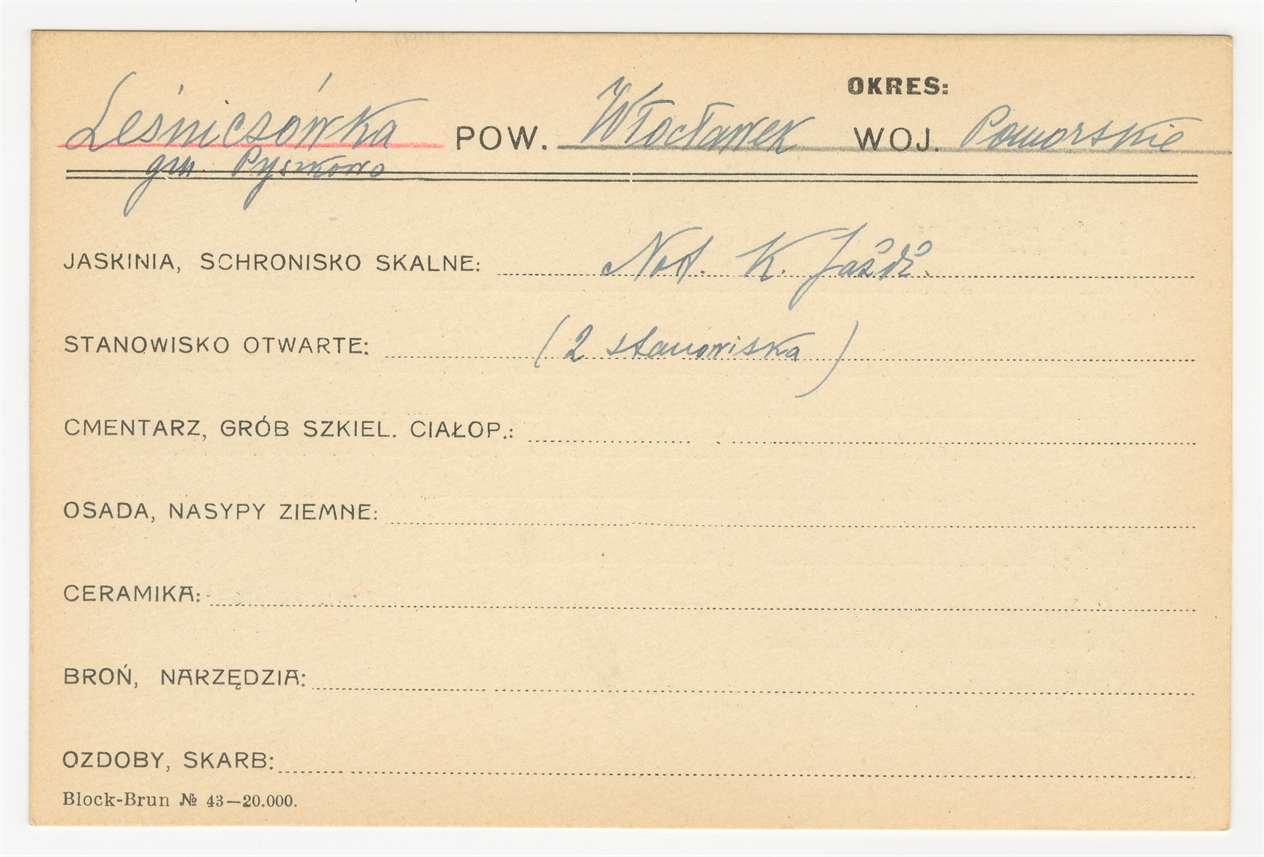 OKRES:
Leśniczówka POW. Włocławek WOJ. Pomorskie
gm. Pyszkowo
JASKINIA, SCHRONISKO SKALNE: Not. K. Jażdż.
STANOWISKO OTWARTE: (2 stanowiska)
CMENTARZ, GRÓB SZKIEL. CIAŁOP.:
OSADA, NASYPY ZIEMNE:
CERAMIKA:
BROŃ, NARZĘDZIA:
OZDOBY, SKARB:
Block-Brun № 43—20.000.